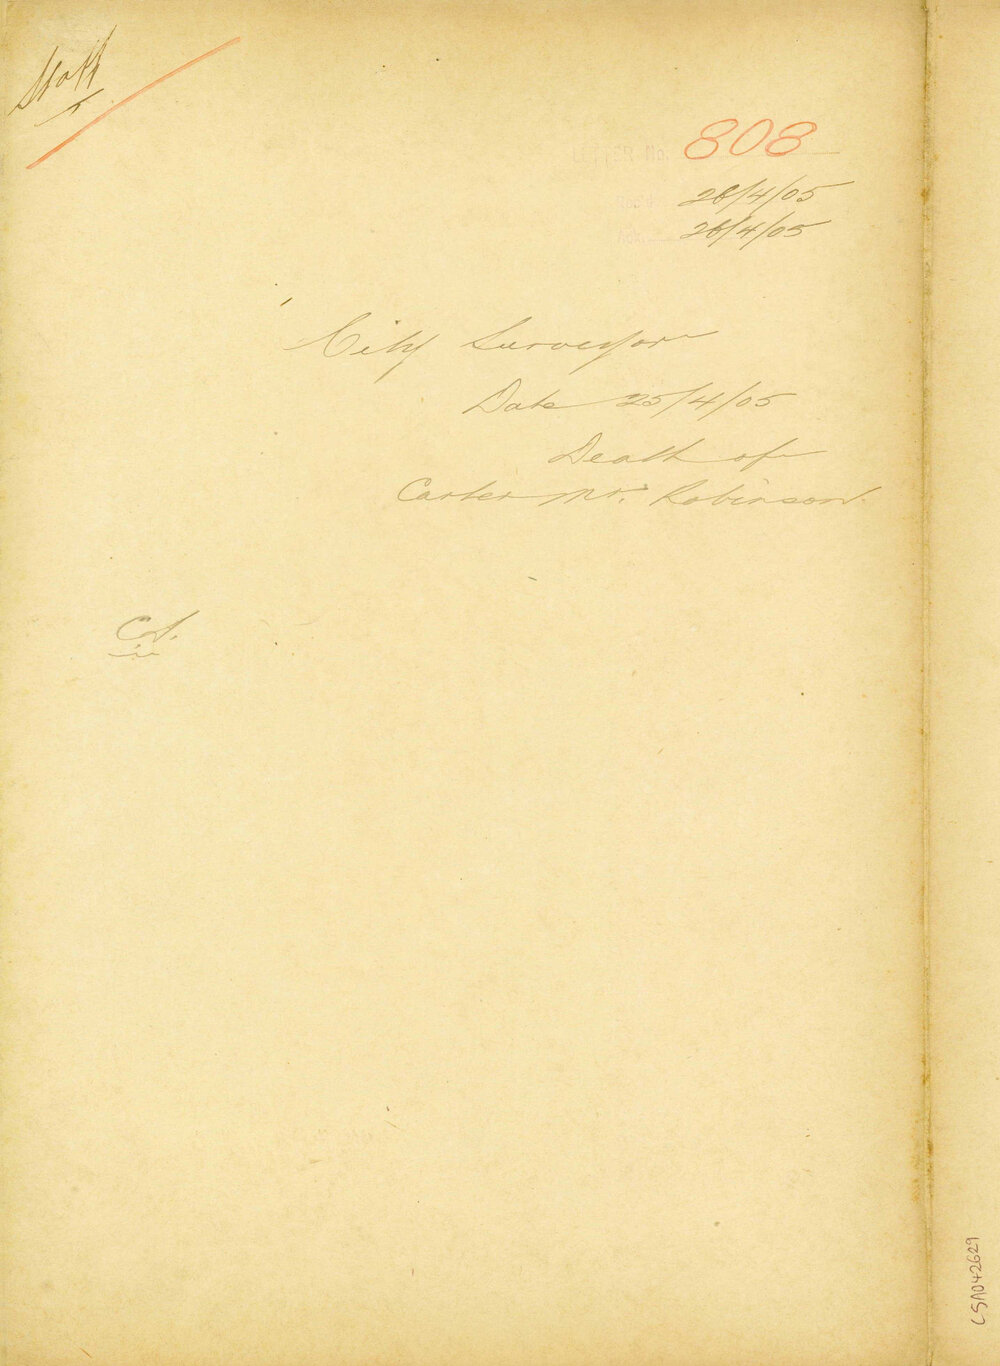 Staff
LETTER No. 808
28/4/05
26/4/05
City Surveyor
Date 25/4/05
Death of
Carter Mr. Robinson.
C.S.
CSA042629